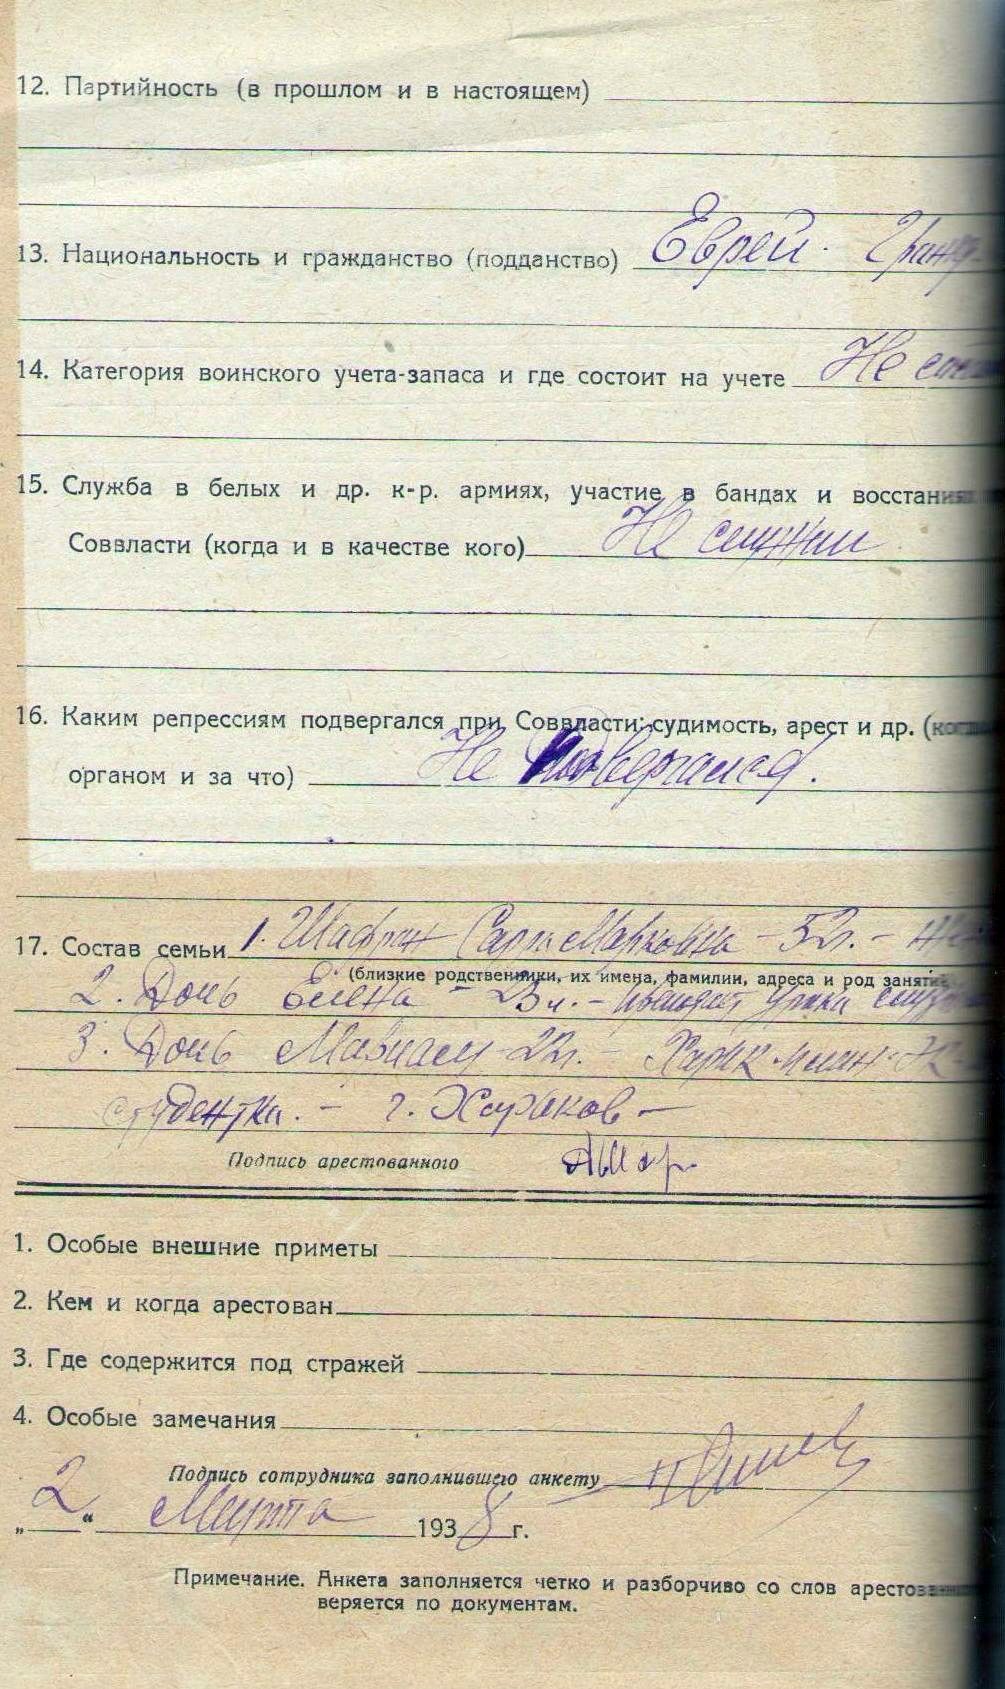 12. Партийность (в прошлом и в настоящем)
13. Национальность и гражданство (подданство) Еврей.
14. Категория воинского учета-запаса и где состоит на учете Не
15. Служба в белых и др. к-р. армиях, участие в бандах и восстаниях
Соввласти (когда и в качестве кого) Не служил
16. Каким репрессиям подвергался при Соввласти: судимость, арест и др. (когда
органом и за что) Не подвергался.
17. Состав семьи 1. Шафран Сарра Марковна – 52 г. –
(близкие родственники, их имена, фамилии, адреса и род занятий
2. Дочь Елена – 23 г. –
3. Дочь 22 г. – Харк.
студентка. – г. Харьков –
Подпись арестованного
1. Особые внешние приметы
2. Кем и когда арестован
3. Где содержится под стражей
4. Особые замечания
Подпись сотрудника заполнившего анкету
„2“ Марта 1938 г.
Примечание. Анкета заполняется четко и разборчиво со слов
веряется по документам.